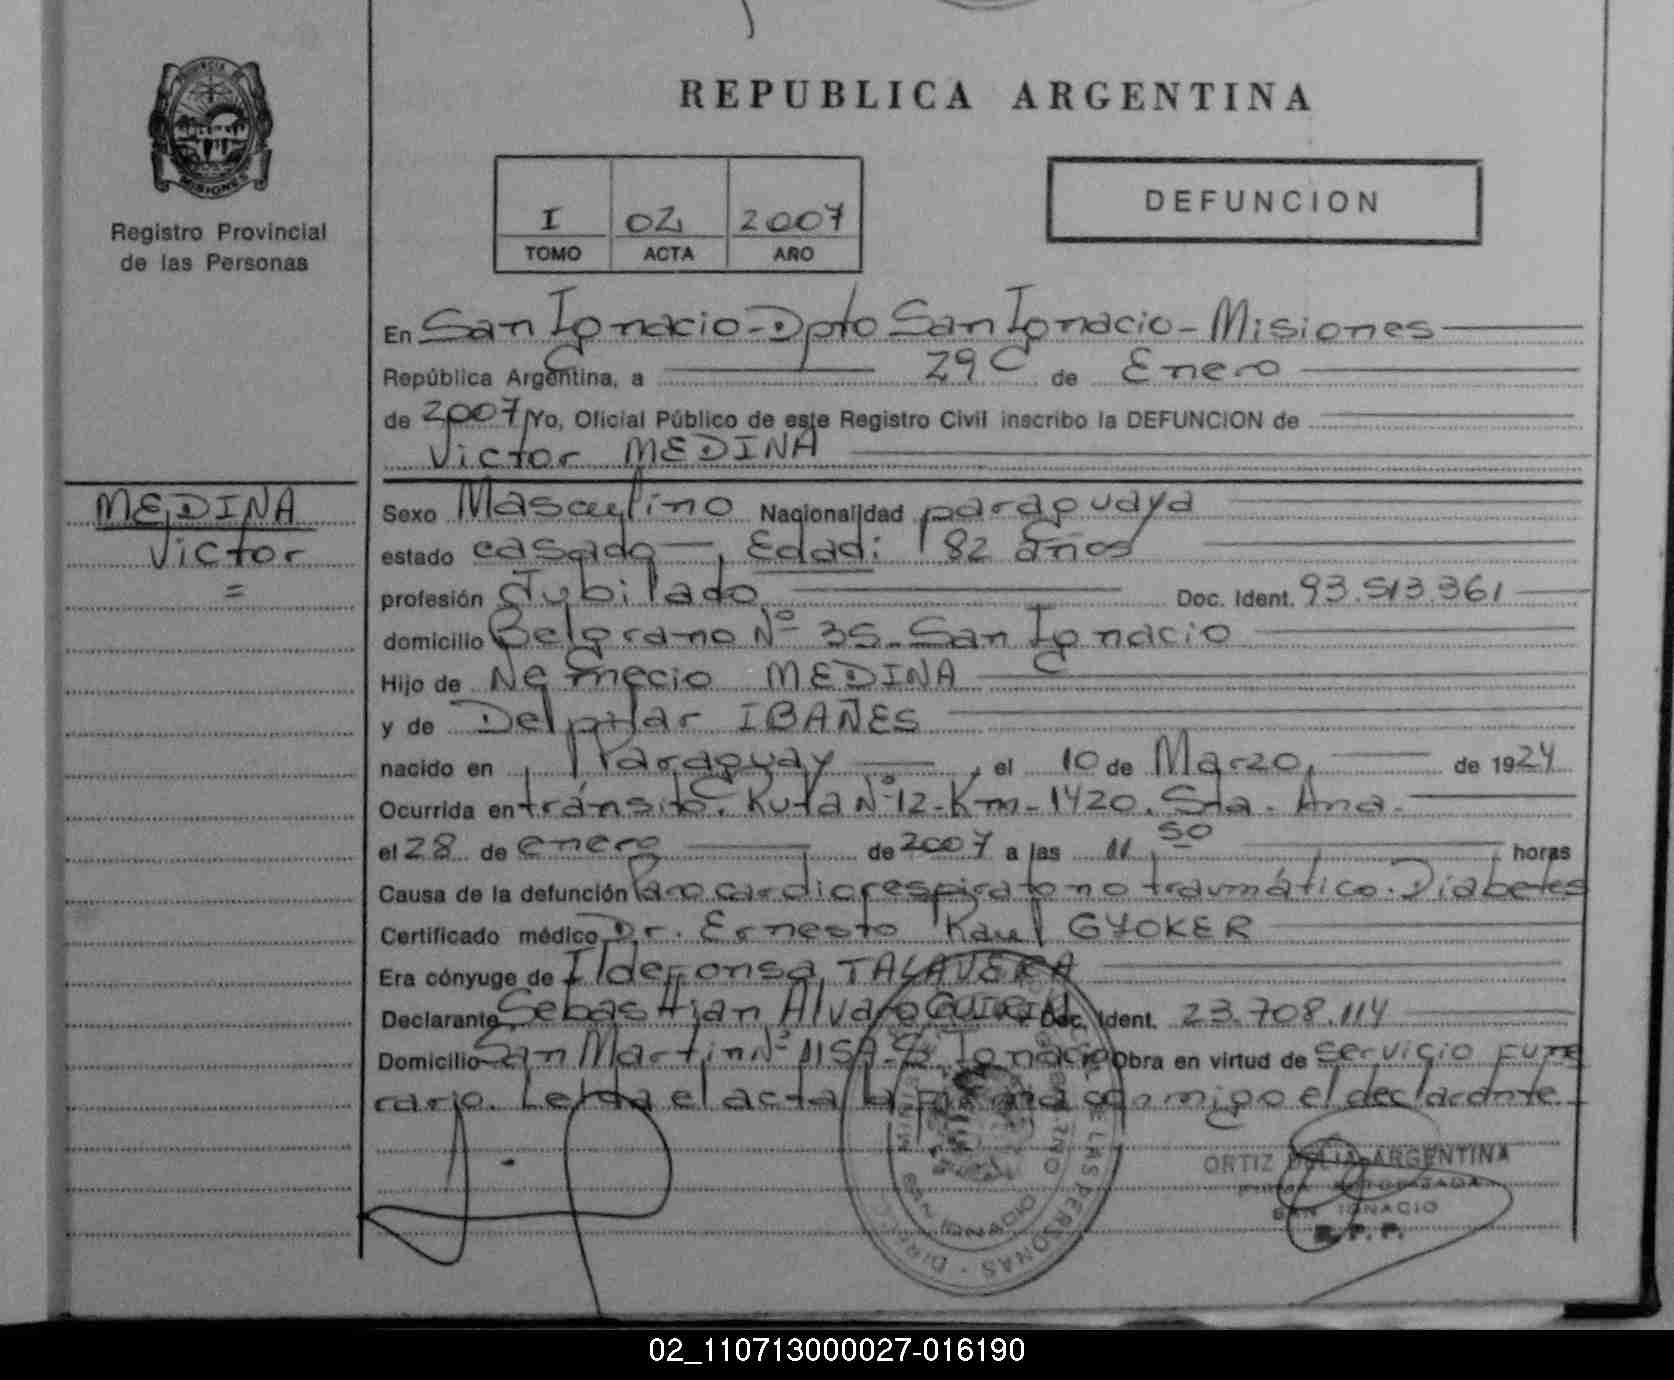 REPUBLICA ARGENTINA
PROVINCIA DE
MISIONES
Registro Provincial
de las Personas
I 02 2007
TOMO ACTA AÑO
DEFUNCION
En San Ignacio - Dpto San Ignacio - Misiones
República Argentina, a 29 de Enero
de 2007 Yo, Oficial Público de este Registro Civil inscribo la DEFUNCION de
Victor MEDINA
MEDINA
Victor
=
Sexo Masculino Nacionalidad paraguaya
estado casado, Edad: 82 años
profesión Jubilado Doc. Ident. 93.513.361
domicilio Belgrano Nº 35 - San Ignacio
Hijo de Nemecio MEDINA
y de Del pilar IBAÑES
nacido en Paraguay, el 10 de Marzo, de 1924
Ocurrida en tránsito. Ruta Nº 12 - Km - 1420. Sta. Ana.
el 28 de enero de 2007 a las 11,50 horas
Causa de la defunción Paro cardiorespirato no traumático. Diabetes
Certificado médico Dr. Ernesto Raul GYOKER
Era cónyuge de Ildefonsa TALAVERA
Declarante Sebastian Alvaro Doc. Ident. 23.708.114
Domicilio San Martin Nº S. Ignacio Obra en virtud de servicio fune
rario. Leida el acta la firma conmigo el declarante
DE LAS PERSONAS
SAN IGNACIO
ORTIZ DELIA ARGENTINA
FIRMA AUTORIZADA
SAN IGNACIO
R.P.P.
02_110713000027-016190